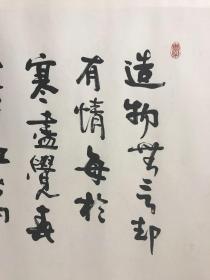 造物無言却
有情每於
寒盡覺春